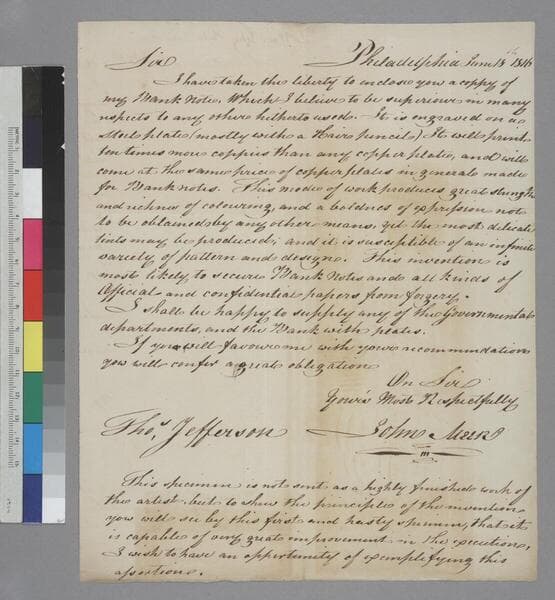 Sir Philadelphia June 18th 1816
I have taken the liberty to enclose you a coppy of
my Bank Note, Which I believe to be superiour in many
respects to any other hitherto used. It is engraved on a
steel plate (mostly with a Hair pencil) It will print
ten times more coppies than any copper plate, and will
come at the same price of copper plates in general made
for Bank notes. This mode of work produces great strength
and richness of colouring, and a boldness of expression not
to be obtained by any other means, yet the most delicate
tints may be produced; and it is susceptible of an infinite
variety of pattern and design. This invention is
most likely to secure Bank Notes and all kinds of
Official and confidential papers from forgery.
I shall be happy to supply any of the Governmental
departments, and the Bank with plates.
If you will favour me with your recommendation
you will confer a great obligation
On Sir
Your's Most Respectfully
Thos. Jefferson John Meer
This specimen is not sent as a highly finished work of
the artist but to shew the principle of the invention
you will see by this first and hasty specimen, that it
is capable of very great improvement in the execution,
I wish to have an opportunity of exemplifying this
assertion.